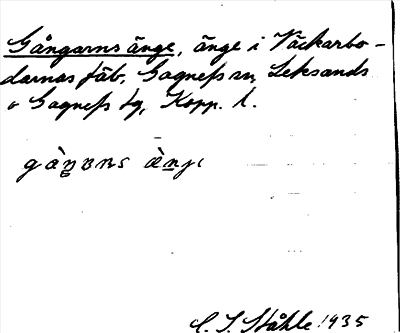 Gångarns änge, änge i Väckarbo-
darnas fäb, Gagnefs sn, Leksands
o Gagnefs tg, Kopp. l.
C. I. Ståhle 1935